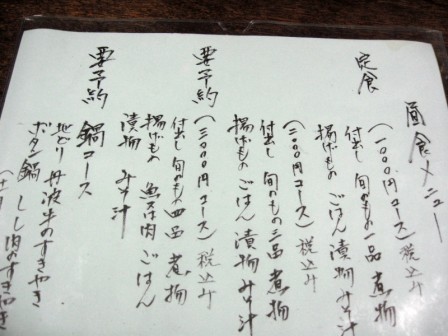 昼食メニュー
定食
(一〇〇〇円コース) 税込み
付出し 旬のもの一品 煮物
揚げもの ごはん 漬物 みそ汁
(二〇〇〇円コース) 税込み
付出し 旬のもの二品 煮物
揚げもの ごはん 漬物 みそ汁
要予約
(三〇〇〇円コース) 税込み
付出し 旬のもの四品 煮物
揚げもの 魚又は肉 ごはん
漬物 みそ汁
要予約
鍋コース
地どり 丹波牛のすきやき
ボタン鍋 しし肉のすきやき